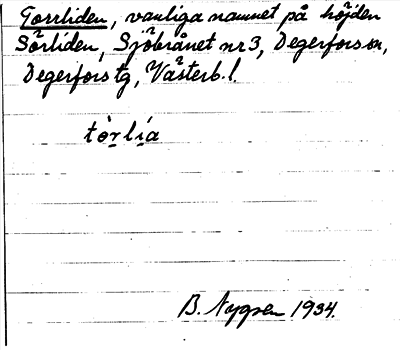 Torrliden, vanliga namnet på höjden
Sörliden, Sjöbrånet nr 3, Degerfors sn,
Degerfors tg, Västerb. l.
tòrlía
B. Nygren 1934.